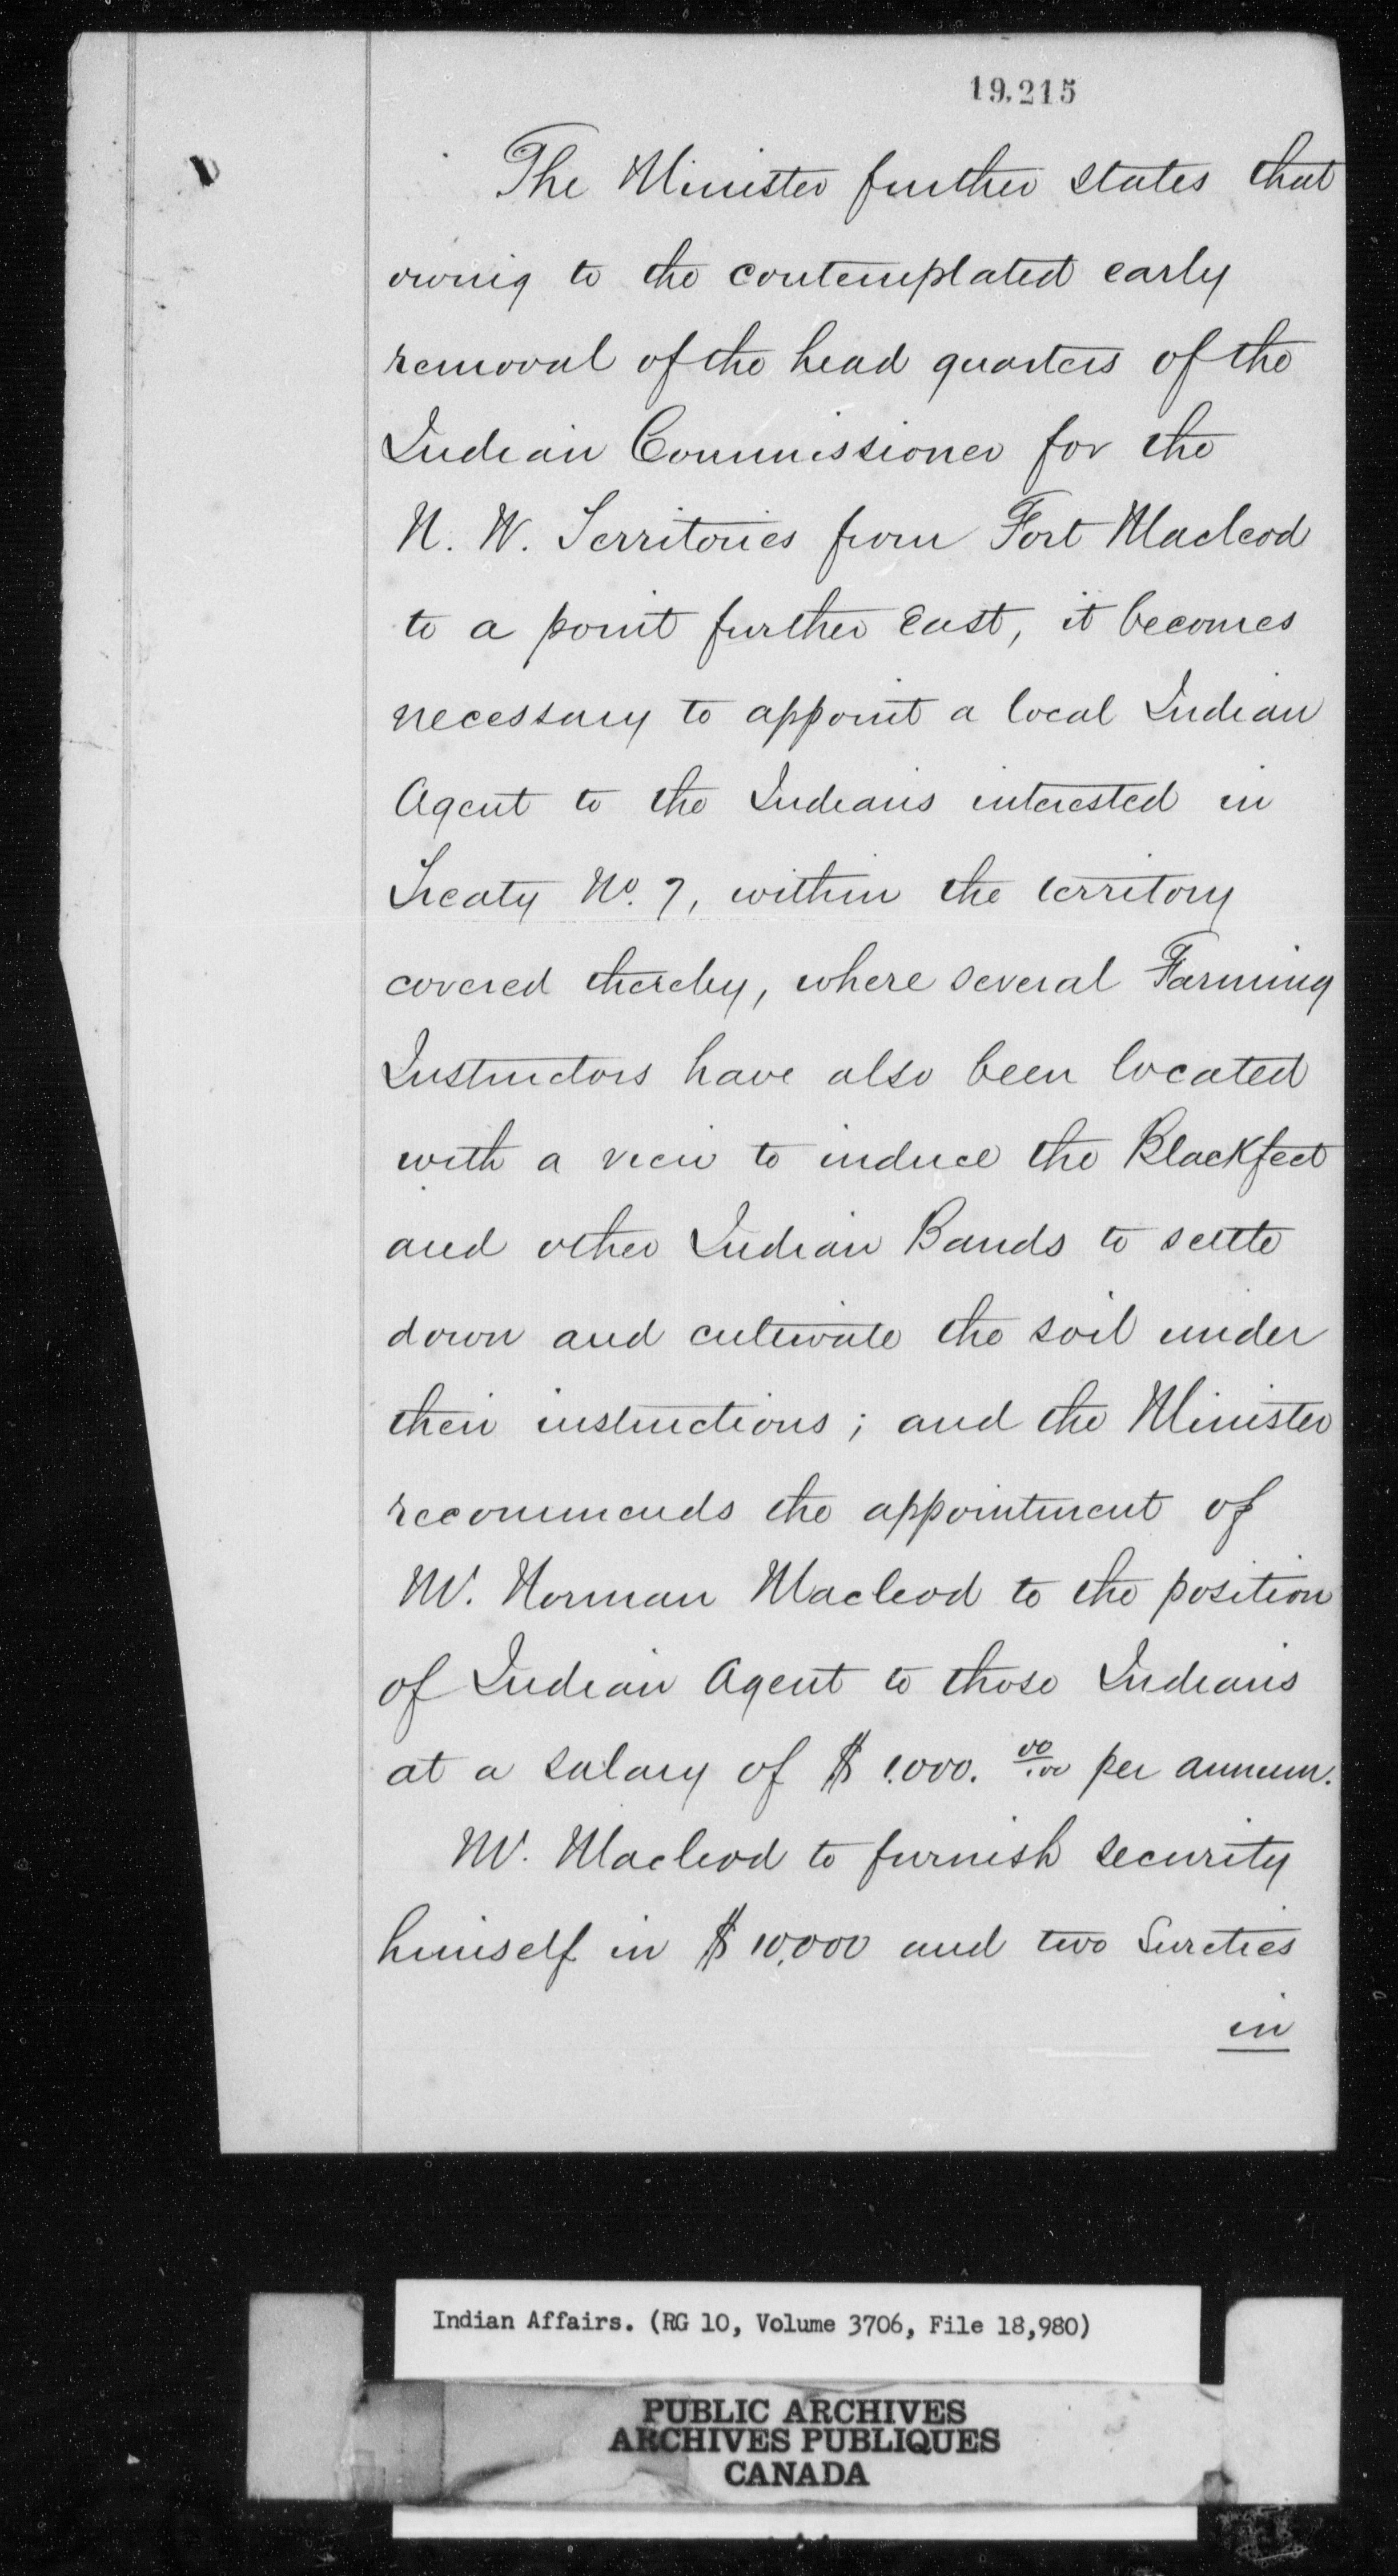 19,215
The Minister further states that
owing to the contemplated early
removal of the head quarters of the
Indian Commissioner for the
N. W. Territories from Fort Macleod
to a point further East, it becomes
necessary to appoint a local Indian
Agent to the Indians interested in
Treaty No. 7, within the territory
covered thereby, where several Farming
Instructors have also been located
with a view to induce the Blackfeet
and other Indian Bands to settle
down and cultivate the soil under
their instructions; and the Minister
recommends the appointment of
Mr. Norman Macleod to the position
of Indian Agent to those Indians
at a salary of $1.000. 00/100 per annum.
Mr. Macleod to furnish security
himself in $10,000 and two Sureties
in
Indian Affairs. (RG 10, Volume 3706, File 18,980)
PUBLIC ARCHIVES
ARCHIVES PUBLIQUES
CANADA